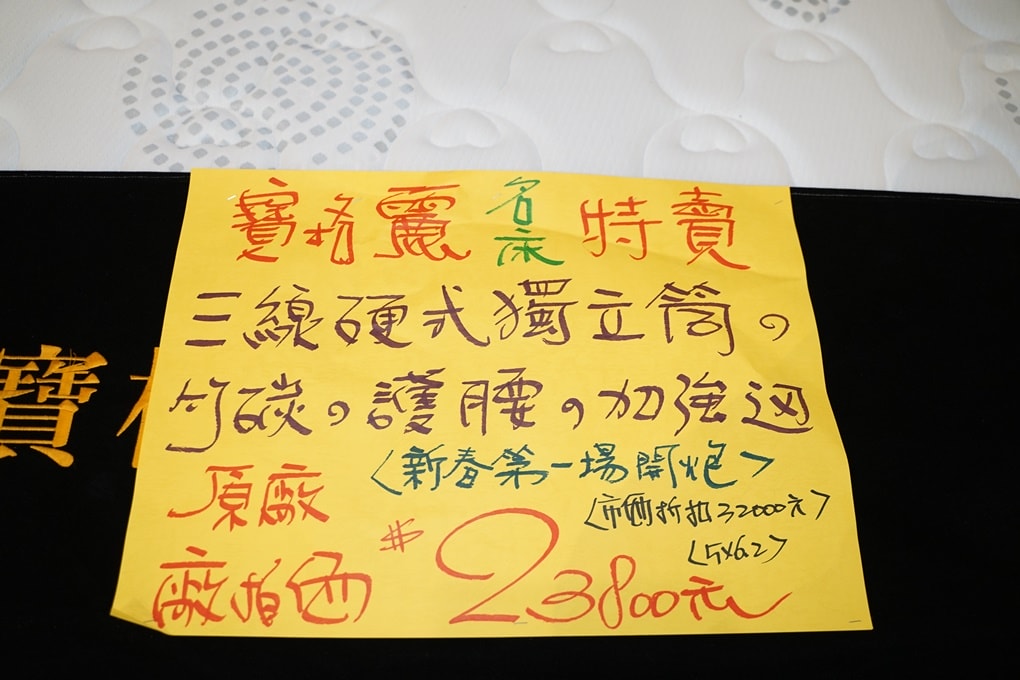 寶格麗名床特賣
三線硬式獨立筒。
竹碳。護腰。加強邊
<新春第一場開炮>
原廠
<市価折扣32000元>
<5x6.2>
廠拍価 $23800元
寶格